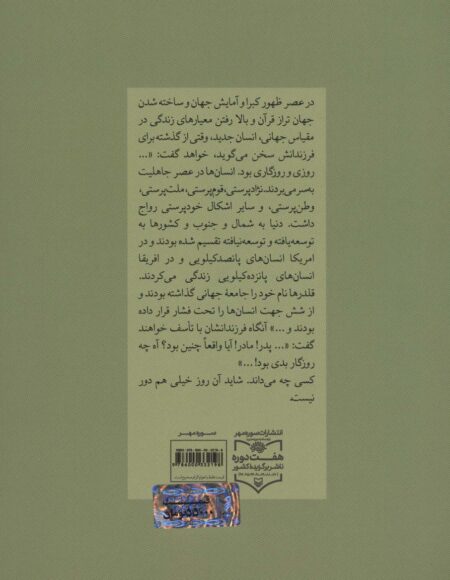 در عصر ظهور کبرا و آمایش جهان و ساخته شدن
جهان تراز قرآن و بالا رفتن معیارهای زندگی در
مقیاس جهانی، انسان جدید، وقتی از گذشته برای
فرزندانش سخن می‌گوید، خواهد گفت: «...
روزی و روزگاری بود. انسان‌ها در عصر جاهلیت
به‌سر می‌بردند. نژادپرستی، قوم‌پرستی، ملت‌پرستی،
وطن‌پرستی، و سایر اشکال خودپرستی رواج
داشت. دنیا به شمال و جنوب و کشورها به
توسعه‌یافته و توسعه‌نیافته تقسیم شده بودند و در
امریکا انسان‌های پانصدکیلویی و در افریقا
انسان‌های پانزده‌کیلویی زندگی می‌کردند.
قلدرها نام خود را جامعهٔ جهانی گذاشته بودند و
از شش جهت انسان‌ها را تحت فشار قرار داده
بودند و ...» آنگاه فرزندانشان با تأسف خواهند
گفت: «... پدر! مادر! آیا واقعاً چنین بود؟ آه چه
روزگار بدی بود!...»
کسی چه می‌داند. شاید آن روز خیلی هم دور
نیست.
انتشارات سوره مهر
هفت دوره
ناشر برگزیده کشور
سوره مهر